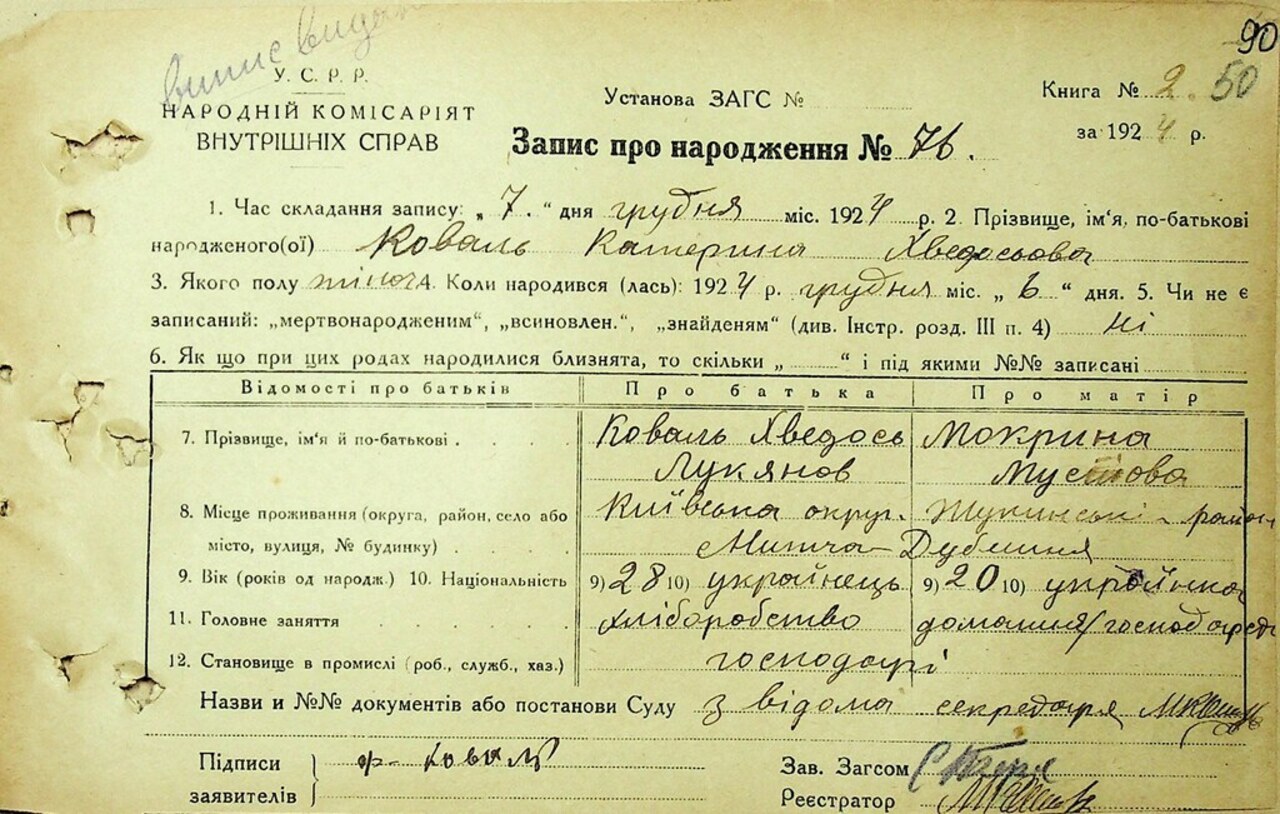 витис видан
90
У. С. Р. Р.
НАРОДНІЙ КОМІСАРІЯТ
ВНУТРІШНІХ СПРАВ
Установа ЗАГС №
Книга № 2. 50
за 1924 р.
Запис про народження № 76.
1. Час складання запису: „ 7. “ дня грудня міс. 1924 р. 2. Прізвище, ім'я, по-батькові
народженого(ої) Коваль Катерина Хведосьова
3. Якого полу жіноч 4. Коли народився (лась): 1924 р. грудня міс. „ 6 “ дня. 5. Чи не є
записаний: „мертвонародженим“, „всиновлен.“, „знайденям“ (див. Інстр. розд. III п. 4) ні
6. Як що при цих родах народилися близнята, то скільки „ “ і під якими №№ записані
Відомості про батьків Про батька Про матір
7. Прізвище, ім'я й по-батькові Коваль Хведось Мокрина
Лукянов
8. Місце проживання (округа, район, село або Київська округ. район
місто, вулиця, № будинку)
9. Вік (років од народж.) 10. Національність 9) 28 10) українець 9) 20 10) українка
11. Головне заняття хліборобство домашня господарст
12. Становище в промислі (роб., служб., хаз.) господарі
Назви и №№ документів або постанови Суду з відома секредаря
Підписи
заявителів
ф- коваль
Зав. Загсом
Реєстратор